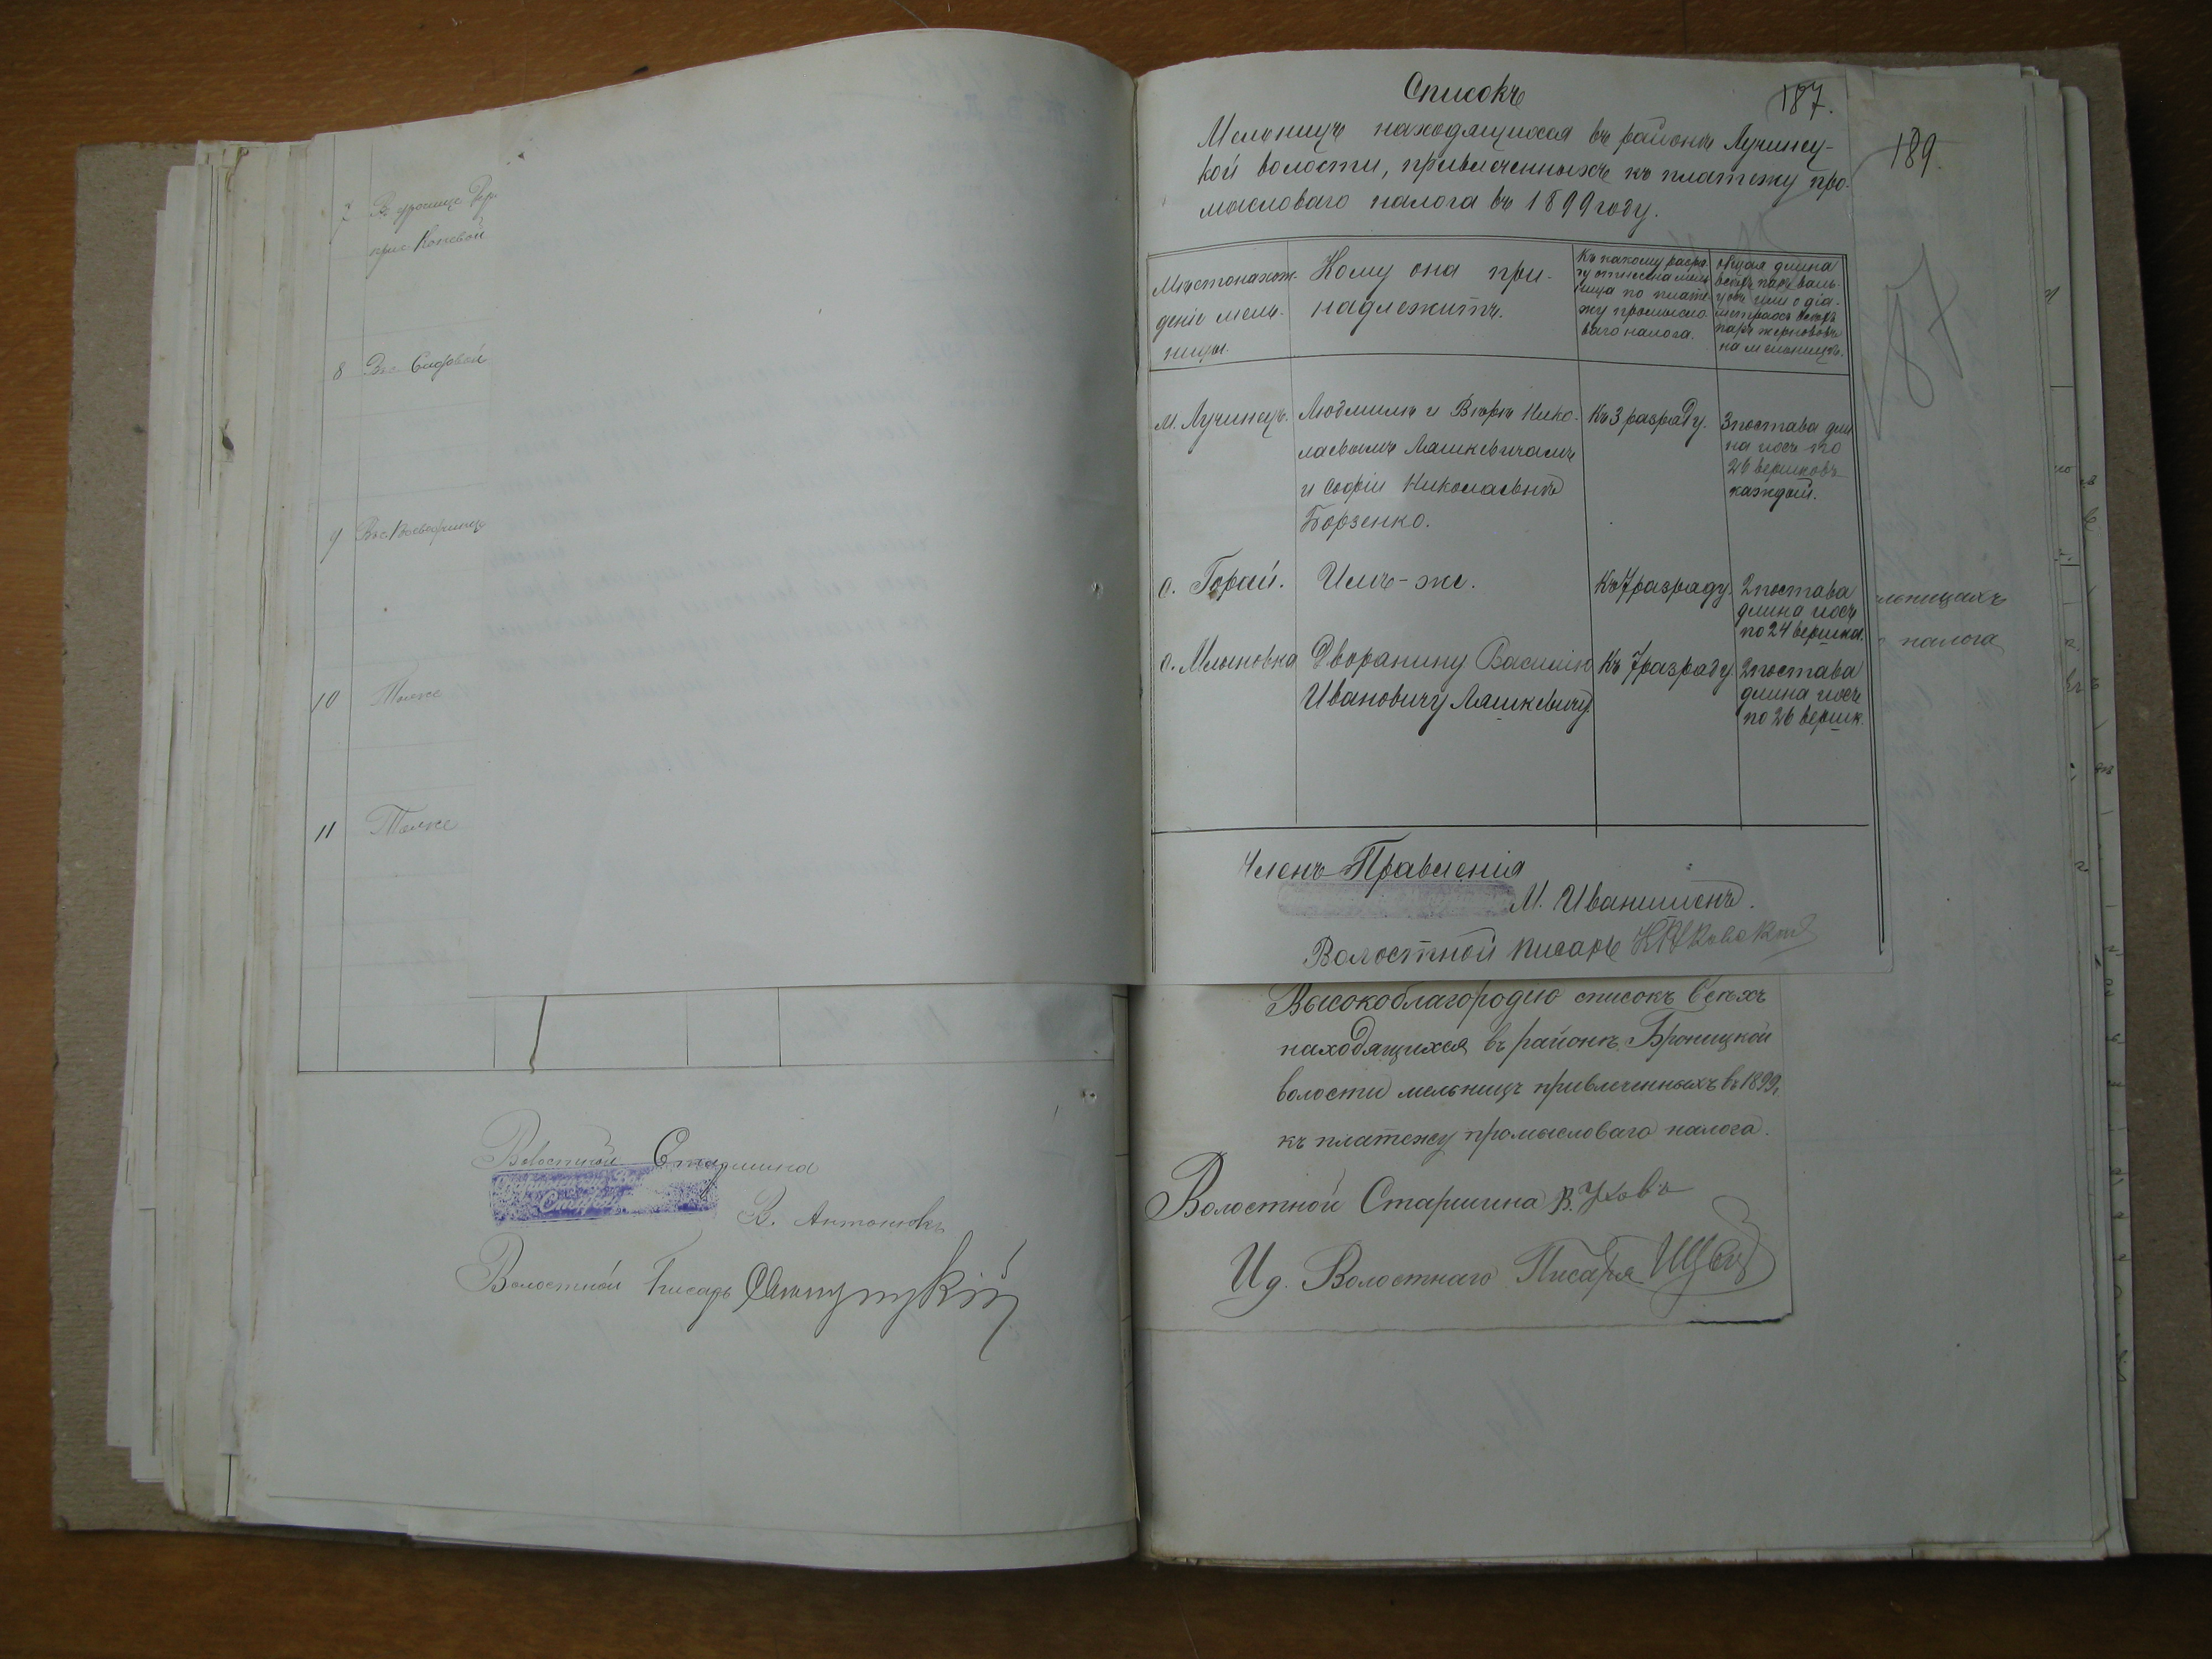 7 Въ урочище
прис. Коневой
8 Въ с.
9 Въ с.
10 Тоже
11 Тоже
Волостной Старшина
В. Антонюкъ
Волостной Писарь
Списокъ
187.
Мельницъ находящихся въ районѣ Лучинец-
кой волости, привлеченныхъ къ платежу про-
мысловаго налога въ 1899 году.
189.
187
Мѣстонахож-
деніе мель-
ницы.
Кому она при-
надлежитъ.
Къ какому разря-
ду отнесена мель
ница по плате-
жу промысло
ваго налога.
Общая длина
всѣхъ паръ валь-
цовъ или о діа-
метрахъ всѣхъ
паръ жернововъ
на мельницѣ.
м. Лучинецъ.
Людмилѣ и Вѣрѣ Нико-
лаевымъ Ляшкевичамъ
и Софіи Николаевнѣ
Борзенко.
Къ 3 разряду.
3 постава дли
на иосъ по
26 вершковъ
каждый.
с. Горай.
Имъ-же.
Къ 7 разряду.
2 постава
длина иосъ
по 24 вершка.
с. Млыновка
Дворянину Василію
Ивановичу Ляшкевичу
Къ 7 разряду.
2 постава
длина иосъ
по 26 вершк.
льницахъ
налога
Членъ Правленія
М. Иванишенъ.
Волостной писарь
Высокоблагородію списокъ всѣхъ
находящихся въ районѣ Броницкой
волости мельницъ привлеченныхъ въ 1899 г.
къ платежу промысловаго налога.
Волостной Старшина В.
И д. Волостнаго Писаря